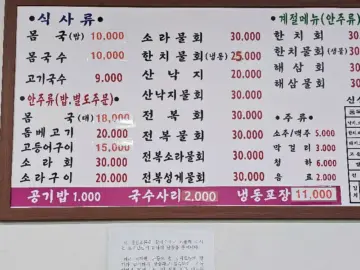 •식사류•
몸국(밥) 10,000
몸국수 10,000
고기국수 9.000
•안주류(밥,별도주문)•
몸국(대) 18,000
돔베고기 20.000
고등어구이 15,000
소라회 30.000
소라구이 20.000
소라물회 30.000
한치물회(냉동) 25.000
산낙지 20.000
산낙지물회 30.000
전복회 30.000
전복물회 30.000
전복소라물회 30.000
전복성게물회 30.000
계절메뉴(안주류)
한치회
한치물회
해삼회
해삼물회
•주류•
소주/맥주 5.000
막걸리 3.000
청하 6.000
음료 2.000
공기밥 1.000 국수사리 2.000 냉동포장 11,000